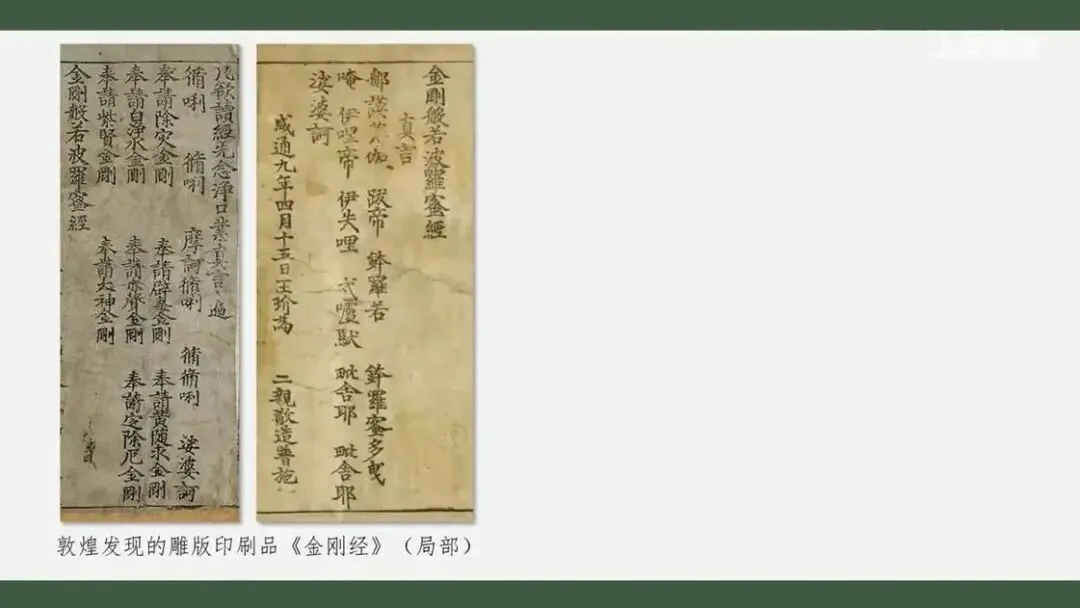 凡欲讀經先念淨口業真言一遍
脩唎 脩唎 摩訶脩唎 脩脩唎 娑婆訶
奉請除灾金剛 奉請辟毒金剛 奉請黃隨求金剛
奉請白淨水金剛 奉請赤聲金剛 奉請定除厄金剛
奉請紫賢金剛 奉請大神金剛
金剛般若波羅蜜經
金剛般若波羅蜜經
真言
那謨薄伽 跋帝 鉢羅若 鉢羅蜜多曳
唵 伊哩帝 伊失哩 戍嚧馱 毗舍耶 毗舍耶
娑婆訶
咸通九年四月十五日王玠為 二親敬造普施
敦煌发现的雕版印刷品《金刚经》（局部）